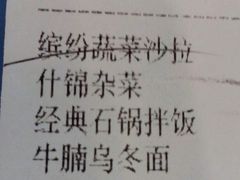 缤纷蔬菜沙拉
什锦杂菜
经典石锅拌饭
牛腩乌冬面